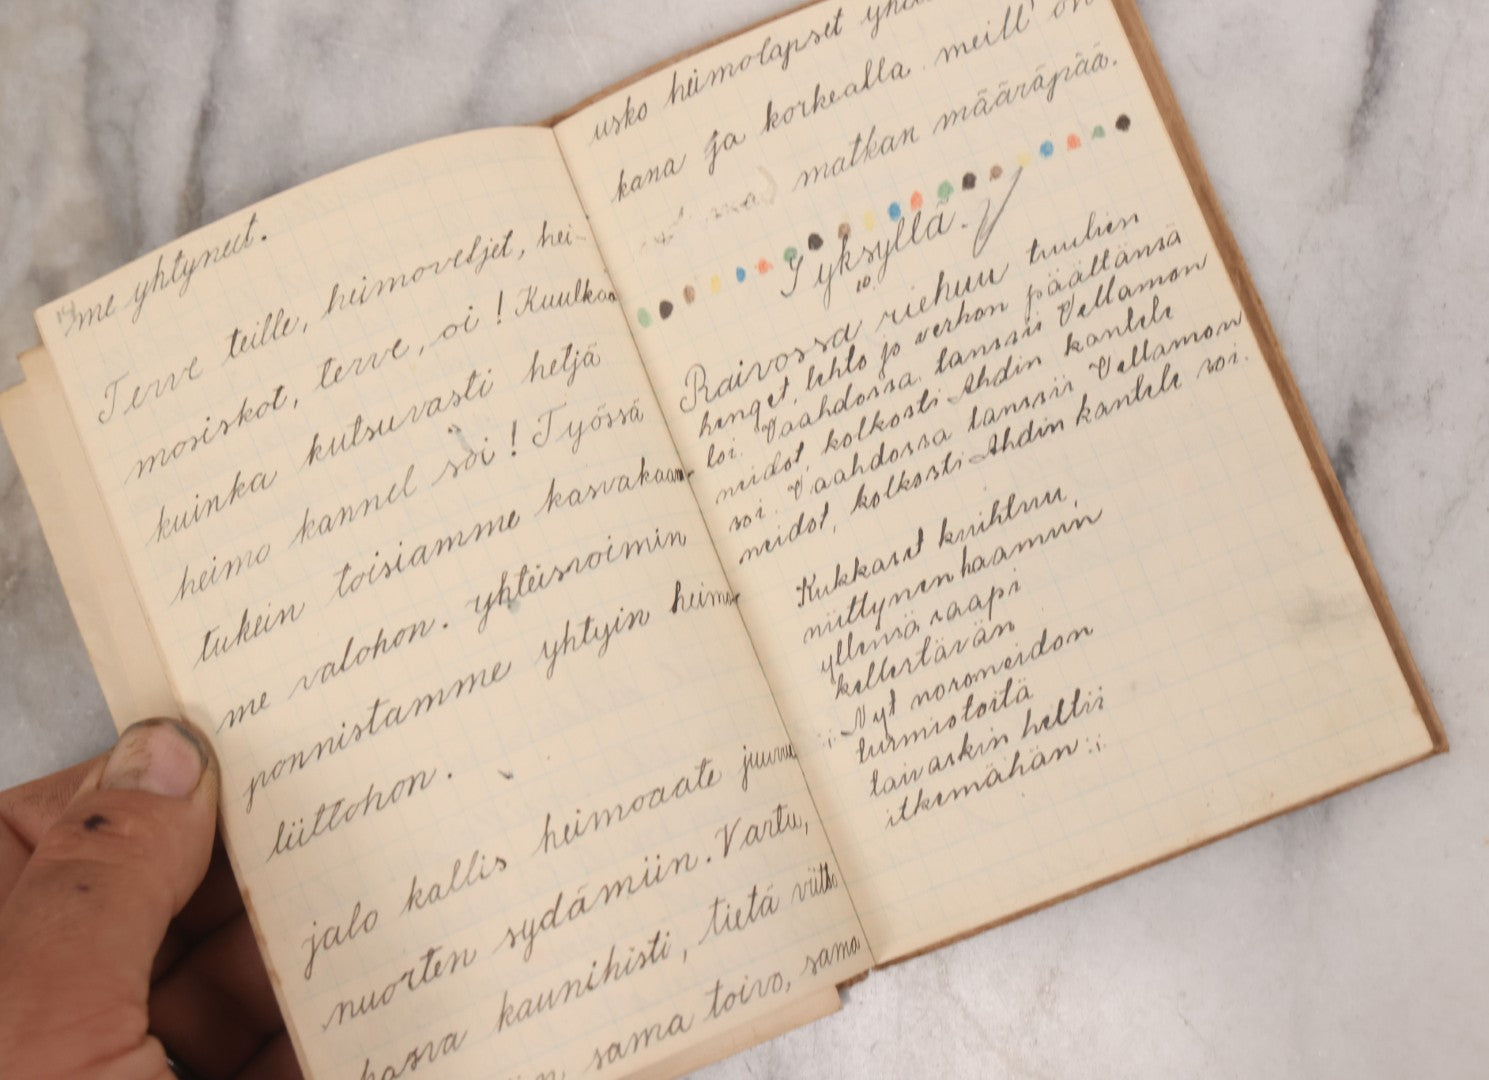 me yhtyneet.
Terve teille, heimoveljet, hei-
mosiskot, terve, oi! Kuulkaa
kuinka kutsuvasti heljä
heimo kannel soi! Työssä
tukein toisiamme kasvakaam-
me valohon. yhteisvoimin
ponnistamme yhtyin heimo-
liittohon.
jalo kallis heimoaate juurru
nuorten sydämiin. Vartu,
kasva kaunihisti, tietä viitto
sama toivo, sama
usko heimolapset
kana ja korkealla meill' on
matkan määräpää.
Syksyllä.
10.
Raivossa riehuu tuulien
henget, lehto jo verhon päältänsä
loi. Vaahdossa tanssii Vellamon
neidot, kolkosti Ahdin kantele
soi. Vaahdossa tanssii Vellamon
neidot, kolkosti Ahdin kantele soi.
Kukkaset kuihtuu,
niittynen haamuin
yllensä saapi
kellertävän
;; Nyt noroneidon
turmiotoitä
taivaskin heltii
itkemähän ;;